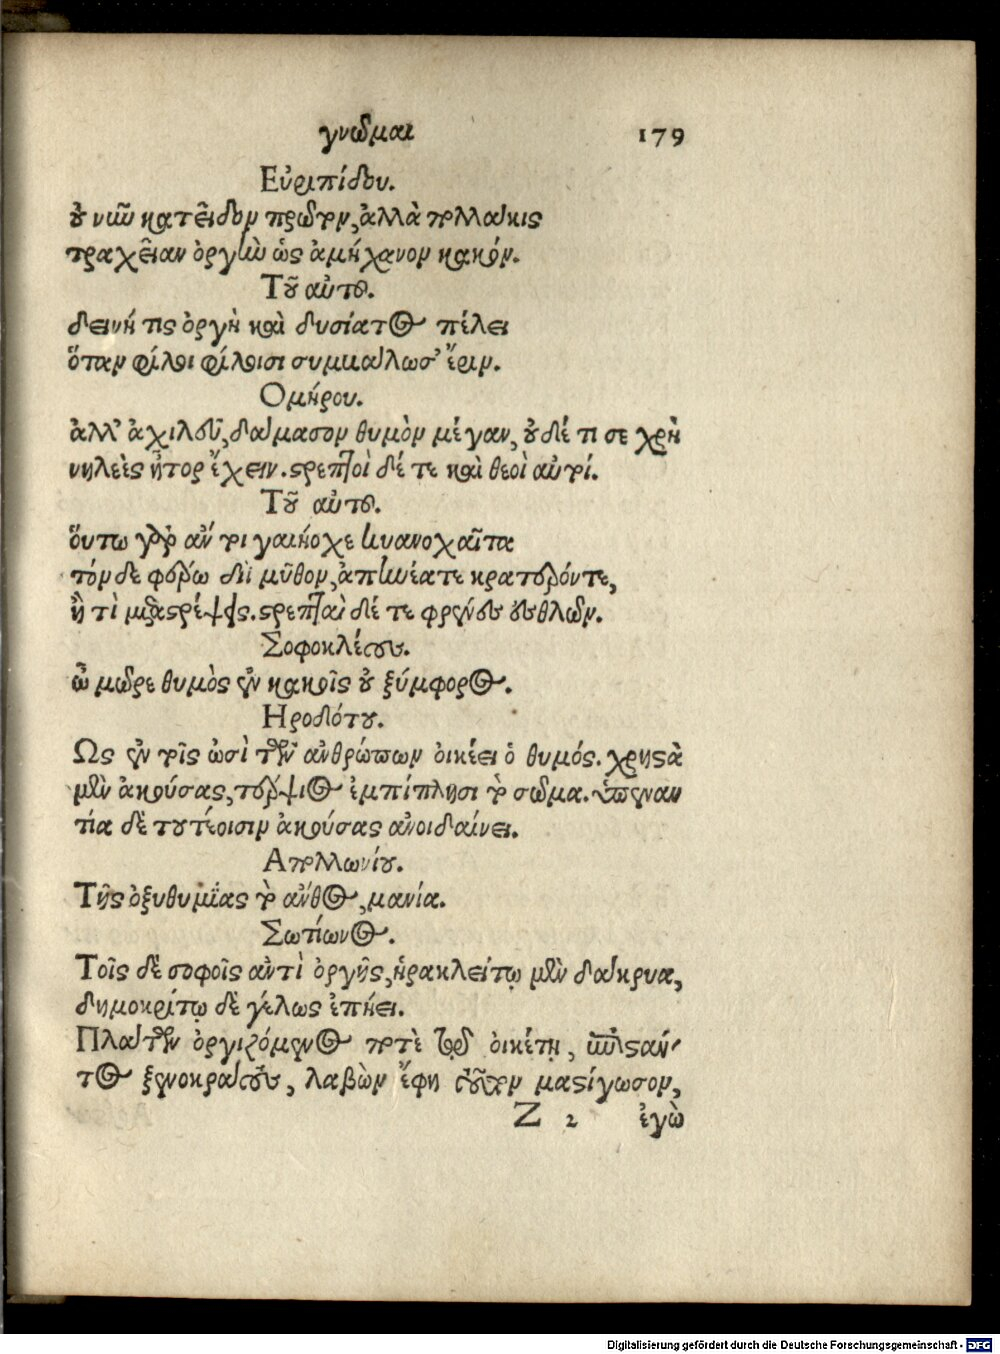 γνῶμαι 179
Εὐριπίδου.
οὐ νῦν κατεῖδον πρῶτον, ἀλλὰ πολλάκις
τραχεῖαν ὀργὴν ὡς ἀμήχανον κακόν.
Τοῦ αὐτοῦ.
δεινή τις ὀργὴ καὶ δυσίατος πέλει
ὅταν φίλοι φίλοισι συμβάλωσ' ἔριν.
Ομήρου.
ἀλλ' ἀχιλεῦ, δάμασον θυμὸν μέγαν, οὐδέ τι σε χρὴ
νηλεὲς ἦτορ ἔχειν. στρεπτοὶ δέ τε καὶ θεοὶ αὐτοί.
Τοῦ αὐτοῦ.
ὅυτω γὰρ ἄν τοι γαιήοχε κυανοχαῖτα
τόνδε φέρω διὶ μῦθον, ἀπηνέατε κρατερόντε,
ἤ τὶ μεταστρέψεις. στρεπταὶ δέ τε φρένες ἐσθλῶν.
Σοφοκλέους.
ὦ μῶρε θυμὸς ἐν κακοῖς οὐ ξύμφορος.
Ηροδότου.
Ως ἐν τοῖς ὠσὶ τῶν ἀνθρώπων οἰκέει ὁ θυμός. χρηστὰ
μὲν ἀκούσας, τέρψιος ἐμπίπλησι τὸ σῶμα. ὑπεναν
τία δὲ τουτέοισιν ἀκούσας ἀνοιδαίνει.
Απολλωνίου.
Τῆς ὀξυθυμΐας τὸ ἄνθος, μανία.
Σωτίωνος.
Τοῖς δὲ σοφοῖς ἀντὶ ὀργῆς, ἡρακλείτῳ μὲν δάκρυα,
δημοκρίτῳ δὲ γέλως ἐπῄει.
Πλάτων ὀργιζόμενος ποτὲ τῷ οἰκέτῃ, ἐπιστάν
τος ξενοκράτους, λαβὼν ἔφη τοῦτον μαστίγωσον,
Z 2 ἐγὼ
Digitalisierung gefördert durch die Deutsche Forschungsgemeinschaft - DFG